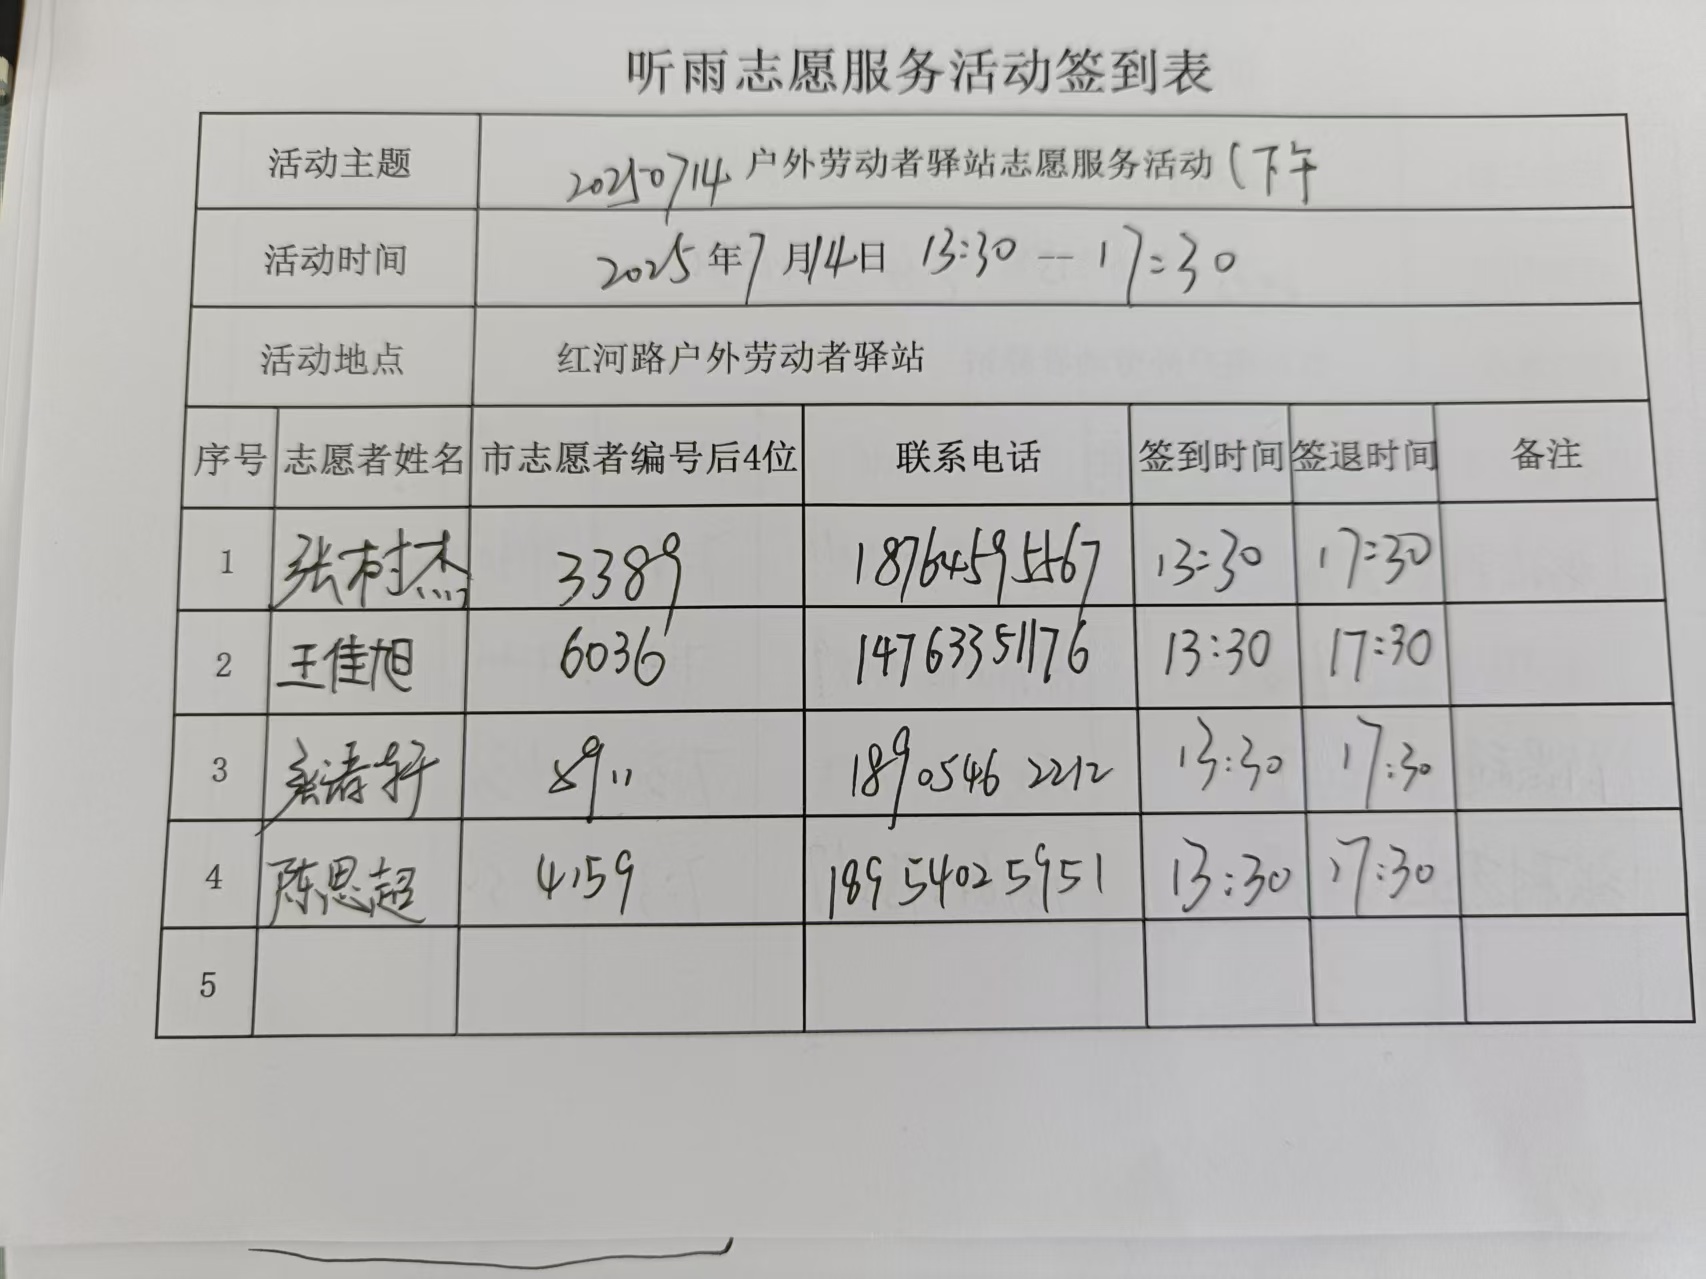 听雨志愿服务活动签到表
活动主题 20250714 户外劳动者驿站志愿服务活动 (下午
活动时间 2025年7月14日 13:30 -- 17:30
活动地点 红河路户外劳动者驿站
序号 志愿者姓名 市志愿者编号后4位 联系电话 签到时间 签退时间 备注
1 张树杰 3389 18764595567 13:30 17:30
2 王佳旭 6036 14763351176 13:30 17:30
3 8911 18905462212 13:30 17:30
4 陈思超 4159 18954025951 13:30 17:30
5